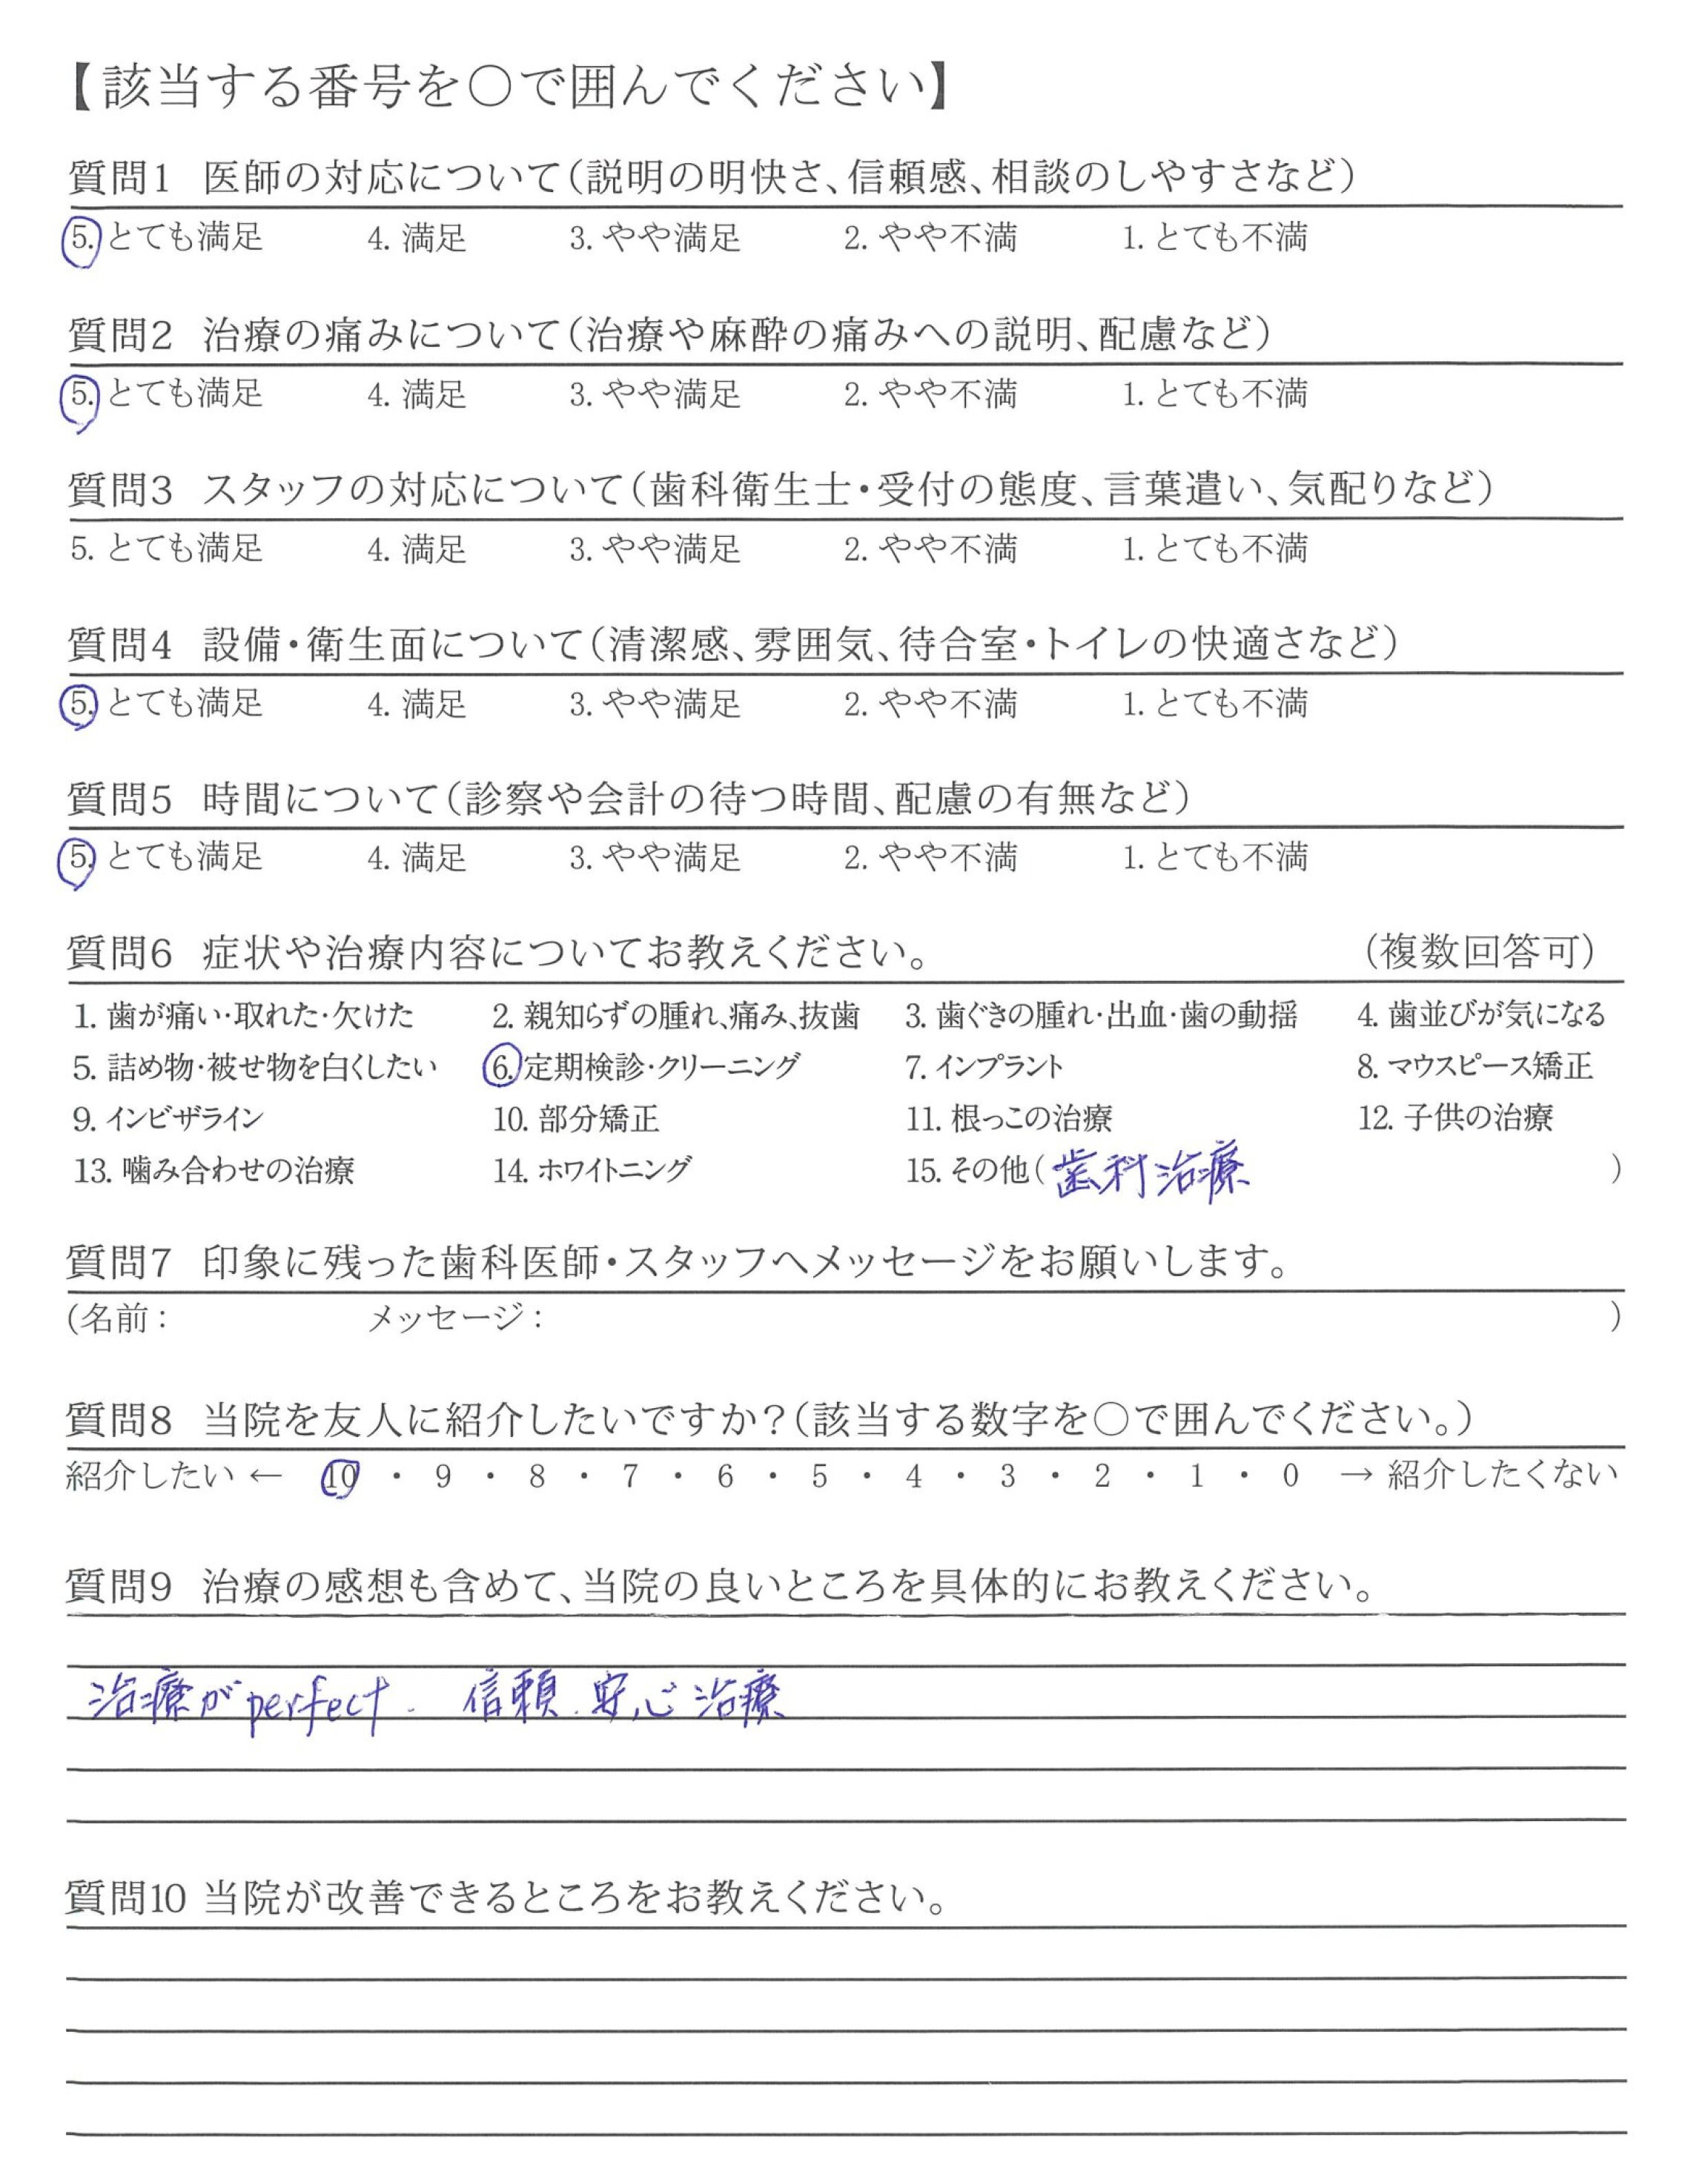 【該当する番号を○で囲んでください】
質問1 医師の対応について(説明の明快さ、信頼感、相談のしやすさなど)
5. とても満足 4. 満足 3. やや満足 2. やや不満 1. とても不満
質問2 治療の痛みについて(治療や麻酔の痛みへの説明、配慮など)
5. とても満足 4. 満足 3. やや満足 2. やや不満 1. とても不満
質問3 スタッフの対応について(歯科衛生士・受付の態度、言葉遣い、気配りなど)
5. とても満足 4. 満足 3. やや満足 2. やや不満 1. とても不満
質問4 設備・衛生面について(清潔感、雰囲気、待合室・トイレの快適さなど)
5. とても満足 4. 満足 3. やや満足 2. やや不満 1. とても不満
質問5 時間について(診察や会計の待つ時間、配慮の有無など)
5. とても満足 4. 満足 3. やや満足 2. やや不満 1. とても不満
質問6 症状や治療内容についてお教えください。 (複数回答可)
1. 歯が痛い・取れた・欠けた 2. 親知らずの腫れ、痛み、抜歯 3. 歯ぐきの腫れ・出血・歯の動揺 4. 歯並びが気になる
5. 詰め物・被せ物を白くしたい 6. 定期検診・クリーニング 7. インプラント 8. マウスピース矯正
9. インビザライン 10. 部分矯正 11. 根っこの治療 12. 子供の治療
13. 噛み合わせの治療 14. ホワイトニング 15. その他(歯科治療 )
質問7 印象に残った歯科医師・スタッフへメッセージをお願いします。
(名前: メッセージ: )
質問8 当院を友人に紹介したいですか?(該当する数字を○で囲んでください。)
紹介したい ← 10 ・ 9 ・ 8 ・ 7 ・ 6 ・ 5 ・ 4 ・ 3 ・ 2 ・ 1 ・ 0 → 紹介したくない
質問9 治療の感想も含めて、当院の良いところを具体的にお教えください。
治療がperfect. 信頼.安心治療
質問10 当院が改善できるところをお教えください。